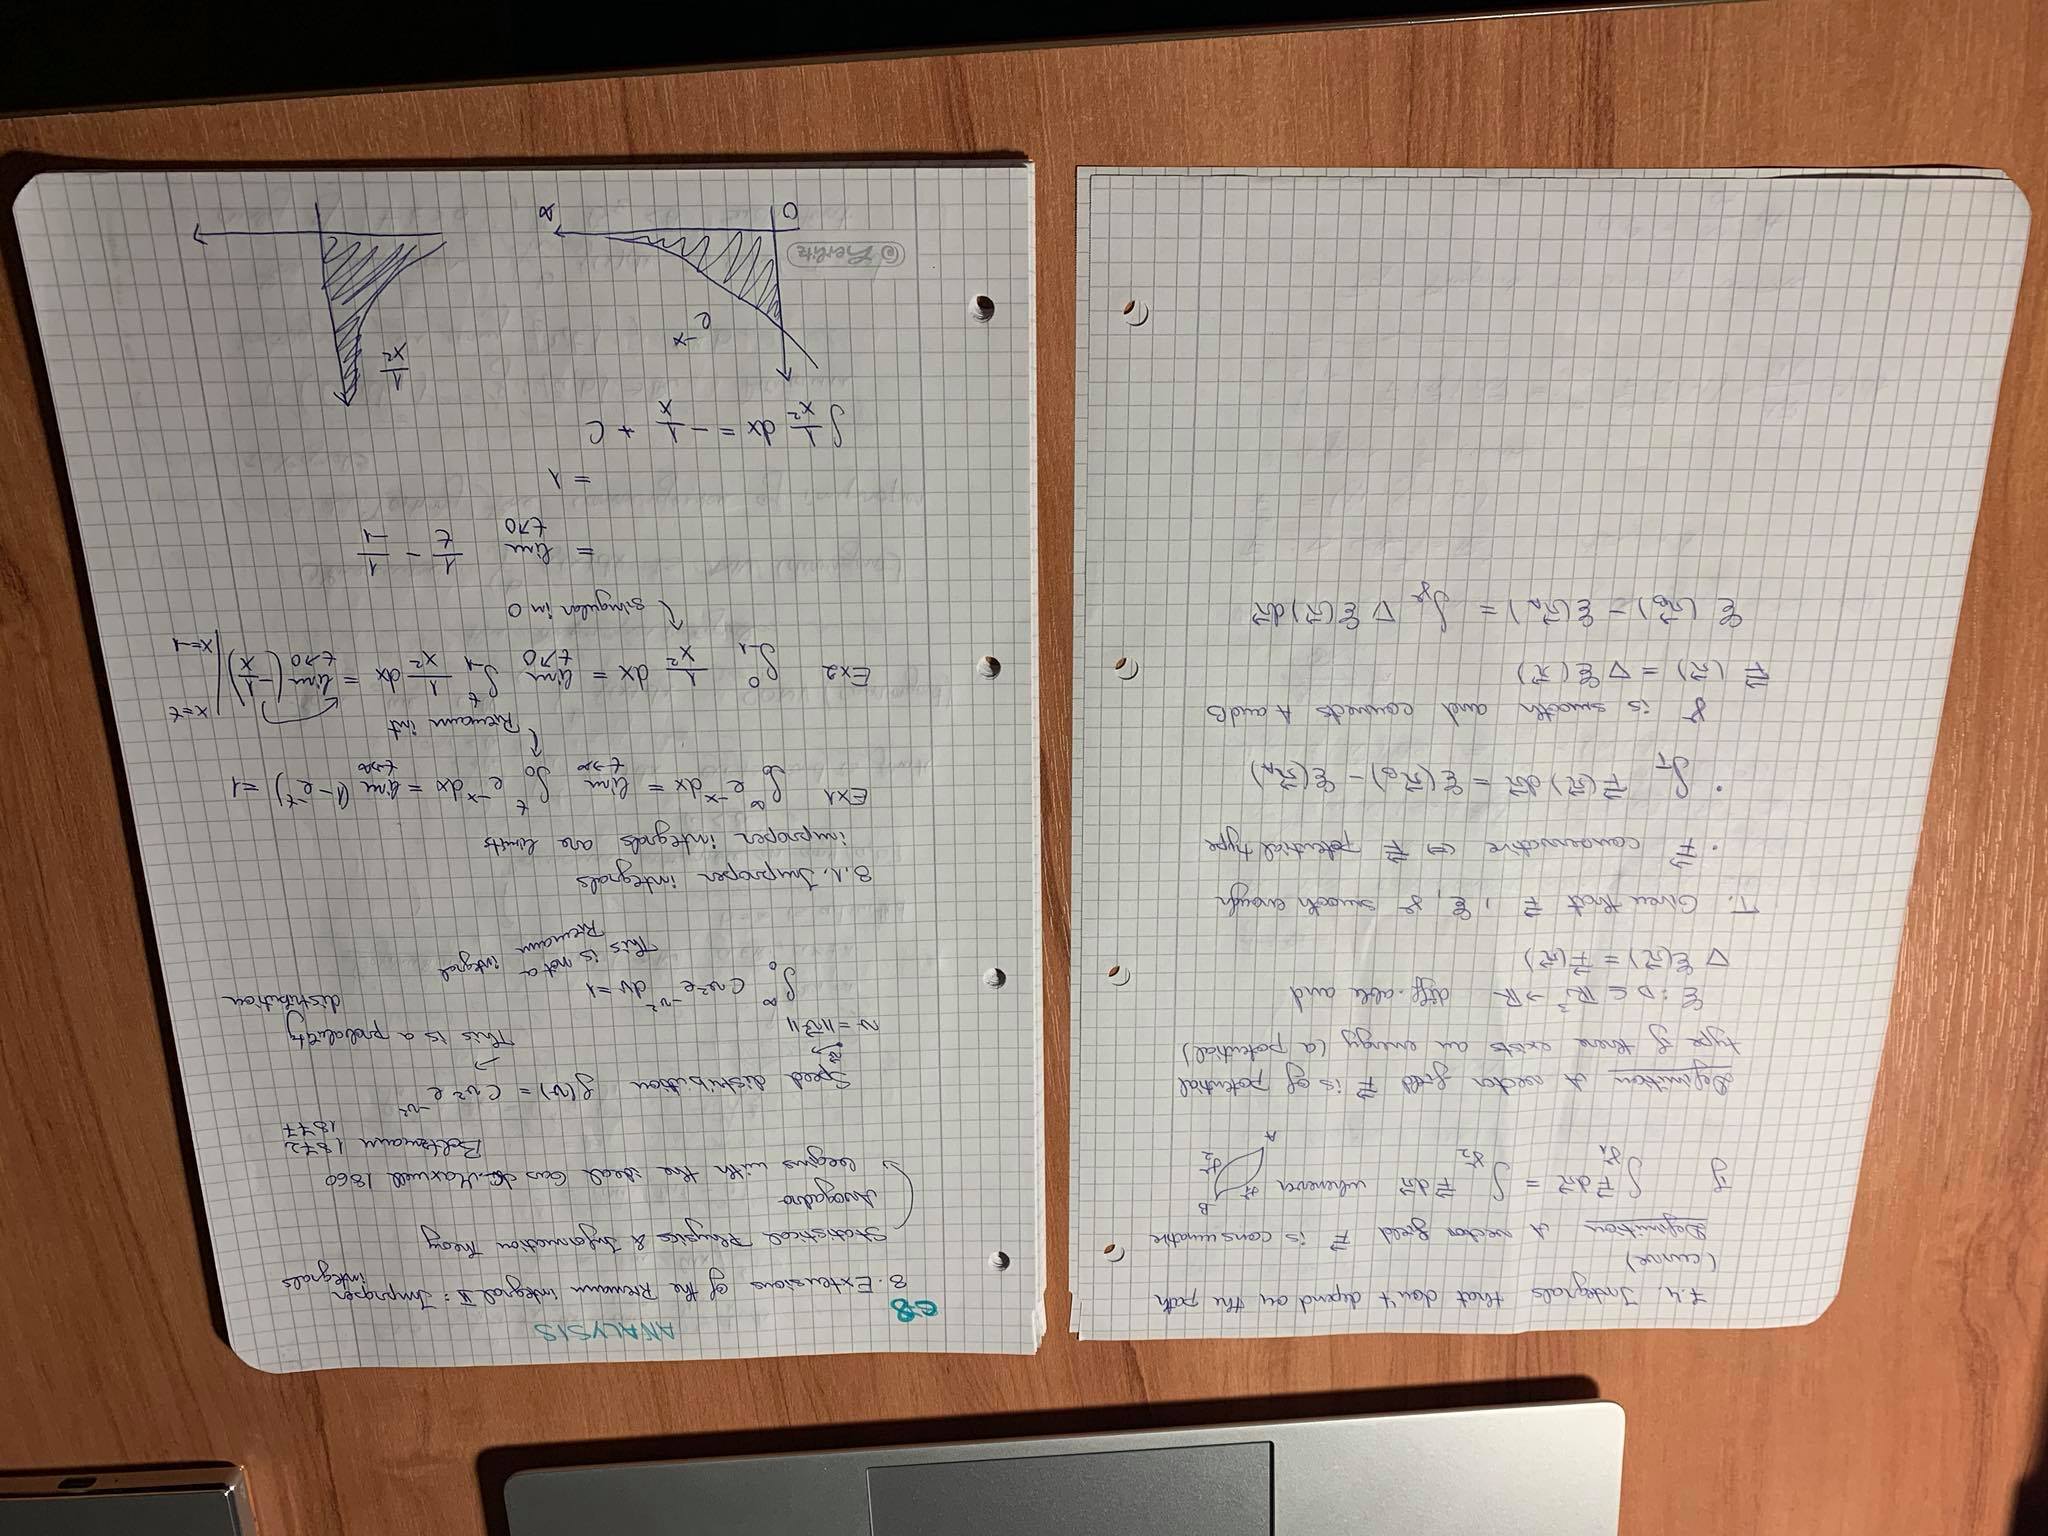 7.4. Integrals that don't depend on the path
(curve)
Definition A vector field F⃗ is conservative
if ∫_γ₁ F⃗ dr⃗ = ∫_γ₂ F⃗ dr⃗ whenever
γ₁
B
γ₂
A
Definition A vector field F⃗ is of potential
type if there exists an energy (a potential)
ℰ : D ⊆ ℝ³ → ℝ diff.able and
∇ ℰ(r⃗) = F⃗(r⃗)
T. Given that F⃗, ℰ, γ smooth enough
· F⃗ conservative ⇔ F⃗ potential type
· ∫_T F⃗(r⃗) dr⃗ = ℰ(r⃗_B) - ℰ(r⃗_A)
γ is smooth and connects A and B
F⃗ (r⃗) = ∇ ℰ(r⃗)
ℰ (r⃗_B) - ℰ(r⃗_A) = ∫_γ ∇ ℰ(r⃗) dr⃗
ANALYSIS
8. Extensions of the Riemann integral II: Improper
integrals
Statistical Physics & Information Theory
Avogadro
begins with the ideal Gas Maxwell 1860
Boltzmann 1872
1877
Speed distribution f(v) = C v² e^-v²
v⃗
v = ||v⃗||
This is a probability
distribution
∫_0^∞ C v² e^-v² dv = 1
This is not a
Riemann integral
8.1. Improper integrals
improper integrals are limits
Ex1 ∫_0^∞ e^-x dx = lim_t→∞ ∫_0^t e^-x dx = lim_t→∞ (1 - e^-t) = 1
↑ Riemann int
Ex2 ∫_-1^0 1/x² dx = lim_t↗0 ∫_-1^t 1/x² dx = lim_t↗0 (-1/x) | x=t x=-1
↑ singular in 0
= lim_t↗0 1/t - 1/-1
= 1
∫ 1/x² dx = - 1/x + C
e^-x
1/x²
© Herlitz
0 ∞